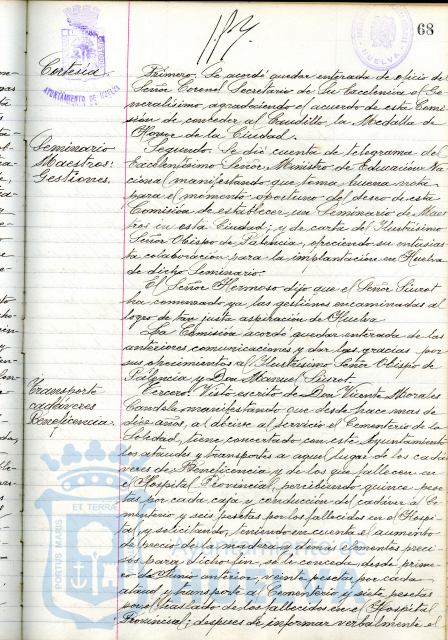 68
AYUNTAMIENTO DE HUELVA
HUELVA
Cortesía.
Primero. Se acordó quedar enterada de oficio del
Señor Coronel Secretario de Su Excelencia el Ge-
neralísimo, agradeciendo el acuerdo de esta Comi-
sión de conceder al Caudillo la Medalla de
Honor de la Ciudad.
Seminario
Maestros:
Gestiones.
Segundo. Se dió cuenta de telegrama del
Excelentísimo Señor Ministro de Educación Na-
cional manifestando que toma buena nota
para el momento oportuno del deseo de esta
Comisión de establecer un Seminario de Maes-
tros en esta Ciudad; y de carta del Ilustrísimo
Señor Obispo de Palencia, ofreciendo su entusias-
ta colaboración para la implantación en Huelva
de dicho Seminario.
El Señor Hermoso dijo que el Señor Siurot
ha comenzado ya las gestiones encaminadas al
logro de tan justa aspiración de Huelva
La Comisión acordó quedar enterada de las
anteriores comunicaciones y dar las gracias por
sus ofrecimientos al Ilustrísimo Señor Obispo de
Palencia y Don Manuel Siurot.
Transporte
cadáveres
Beneficencia
Tercero. Visto escrito de Don Vicente Morales
Candela manifestando que desde hace mas de
diez años, al abrirse al servicio el Cementerio de la
Soledad, tiene concertado con este Ayuntamiento
los ataudes y transportes a aquel lugar de los cadá-
veres de Beneficencia y de los que fallecen en
el Hospital Provincial, percibiendo quince pese-
tas por cada caja y conducción del cadáver al Ce-
menterio y seis pesetas por los fallecidos en el Hospi-
tal y solicitando, teniendo en cuenta el aumento
de precio de la madera y demas elementos preci-
sos para dicho fin, se le conceda, desde prime-
ro de Junio anterior, veinte pesetas por cada
ataud y transporte al Cementerio y siete pesetas
por el traslado de los fallecidos en el Hospital
Provincial; despues de informar verbalmente el
PORTUS MARIS ET TERRAE
Ayuntamiento de
HUELVA